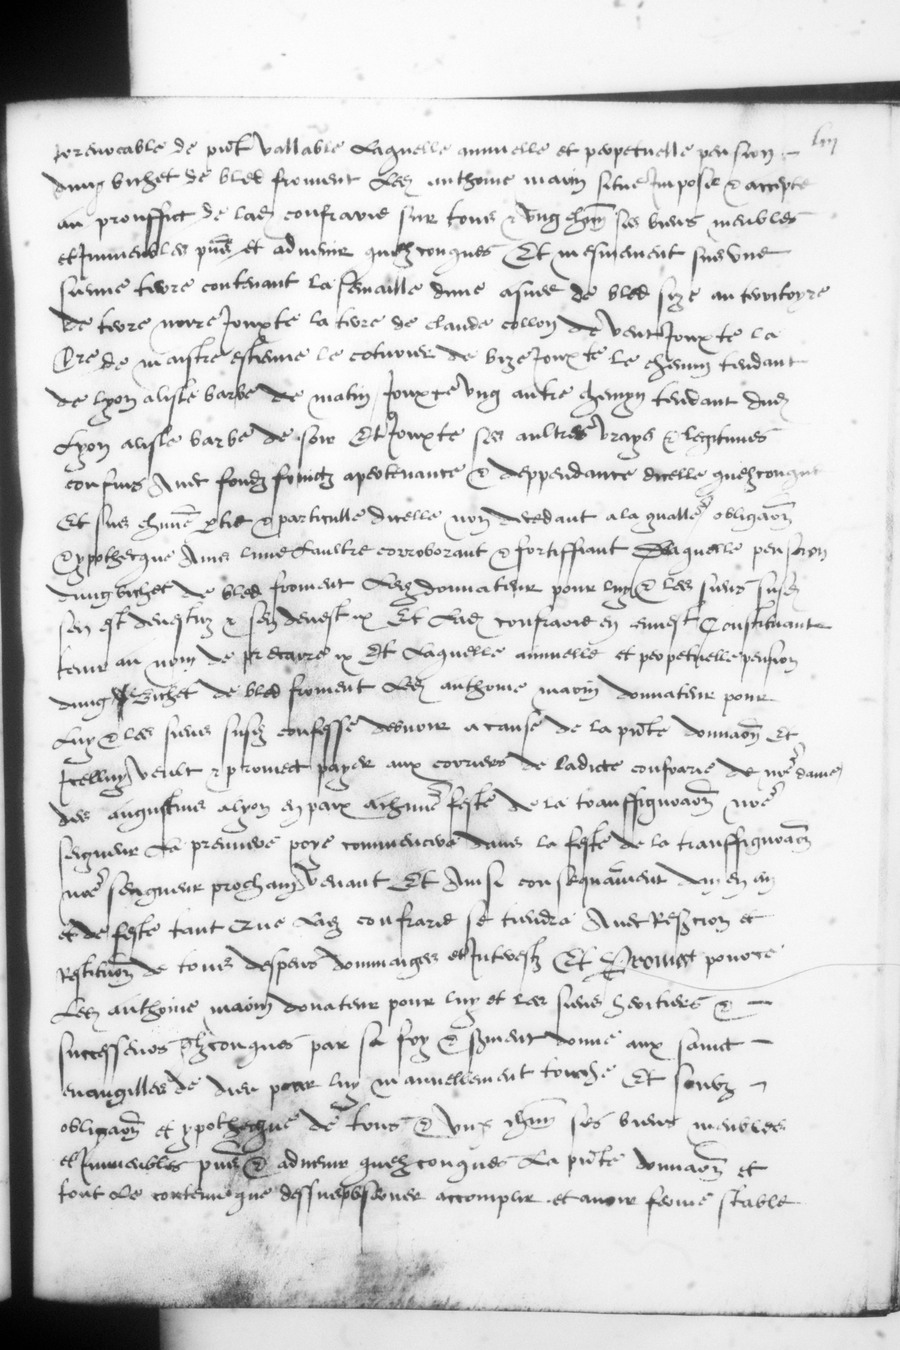 liii
irrevocable de pñt vallable Laquelle annuelle et perpetuelle pension
dung bichet de bled froment Led anthoine marin situe Impose & accepte
au prouffict de lad confrarie sur tous & ung chñ ses biens meubles
et Immeubles pñs et advenir quelzconques Et mesmement sus une
sienne terre contenant la semaille dune asnee de bled size au territoyre
de terre noire Jouxte la terre de claude collon de vent Jouxte la
tre de maistre estienne le de bize Jouxte le chemin tendant
de lyon a lisle barbe de matin Jouxte ung autre chemyn tendant dud
Lyon a lisle barbe de soir Et Jouxte ses aultres vrays & legitimes
confins Avec fondz fruictz apertenance & deppendance dicelle quelzconques
Et sus chũne ptie & particulle dicelle non dicedant a la gñalle obligaõn
& ypothecque Ains lune Laultre corroborant & fortiffiant De laquelle pension
dung bichet de bled froment Led donnateur pour luy & les siens susd
sen est devestuz & sen devest &c Et Lad confrarie en envest Constituant
tenir au nom de precaire &c Et Laquelle annuelle et perpetuelle pension
dung bichet de bled froment Led anthoine marin donnateur pour
Luy & les siens susd confesse debvoir a cause de la pñte donnaõn Et
Icelluy veult & promect payer aux corriers de ladicte confrarie de nr̃e dame
des augustins a lyon en paix a chũne feste de la transfiguraõn nr̃e
seigneur La premiere paye commencera dans la feste de la transfiguraõn
nr̃e seigneur prochain venant Et Ainsi consequãment dan en an
et de feste tant Que Lad confrarie se tiendra Avec Reffection et
Restituõn de tous despens dommaiges et Interestz Et Promect
Led anthoine marin donateur pour luy et les siens heritiers &
successeurs qlzconques par sa foy & serment donne aux sainct
euvangilles de dieu par luy manuellement touche Et soubz
obligaõn et ypothecque de tous & ungs chñ ses biens meubles
et Immeubles pñs & advenir quelzconques La pñte donnaõn et
tout le contenu que dessus observer accomplir et avoir ferme stable